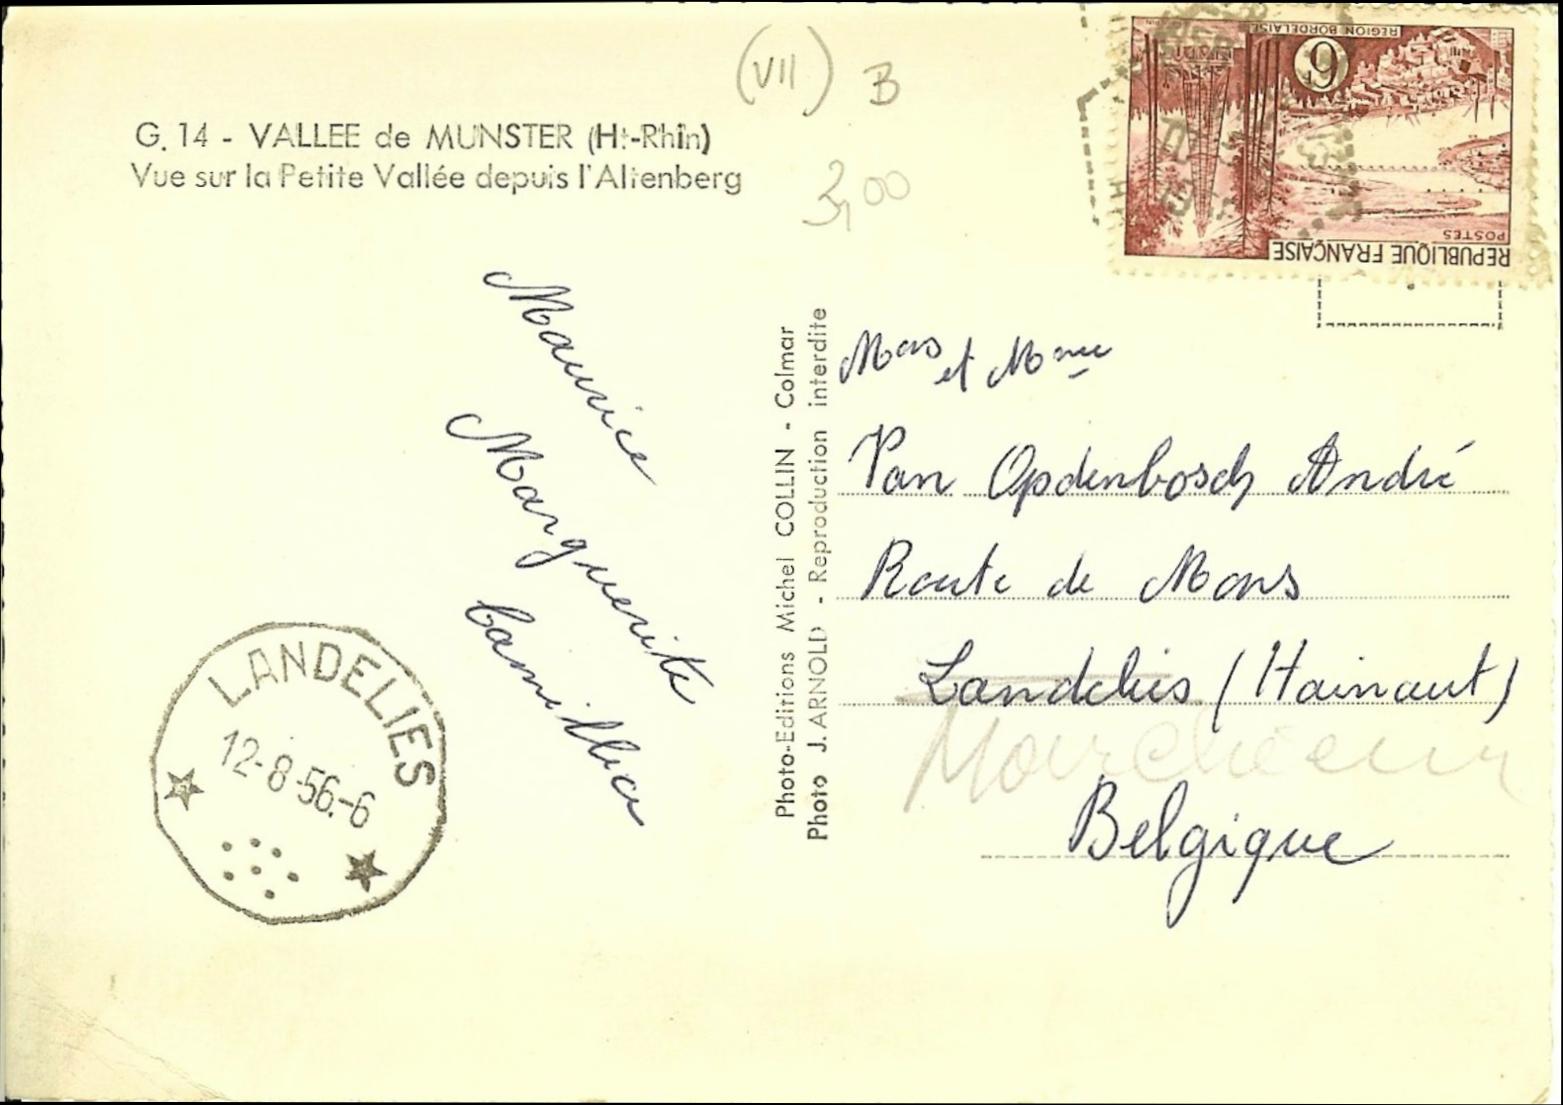 (VII) B
G. 14 - VALLEE de MUNSTER (Ht-Rhin)
Vue sur la Petite Vallée depuis l'Altenberg
3,00
Maurice
Marguerite
Camillia
LANDELIES
12-8-56.-6
Photo-Editions Michel COLLIN - Colmar
Photo J. ARNOLD - Reproduction interdite
REGION BORDELAISE
6
POSTES
REPUBLIQUE FRANÇAISE
Mons et Mme
Van Opdenbosch André
Route de Mons
Landelies (Hainaut)
Belgique